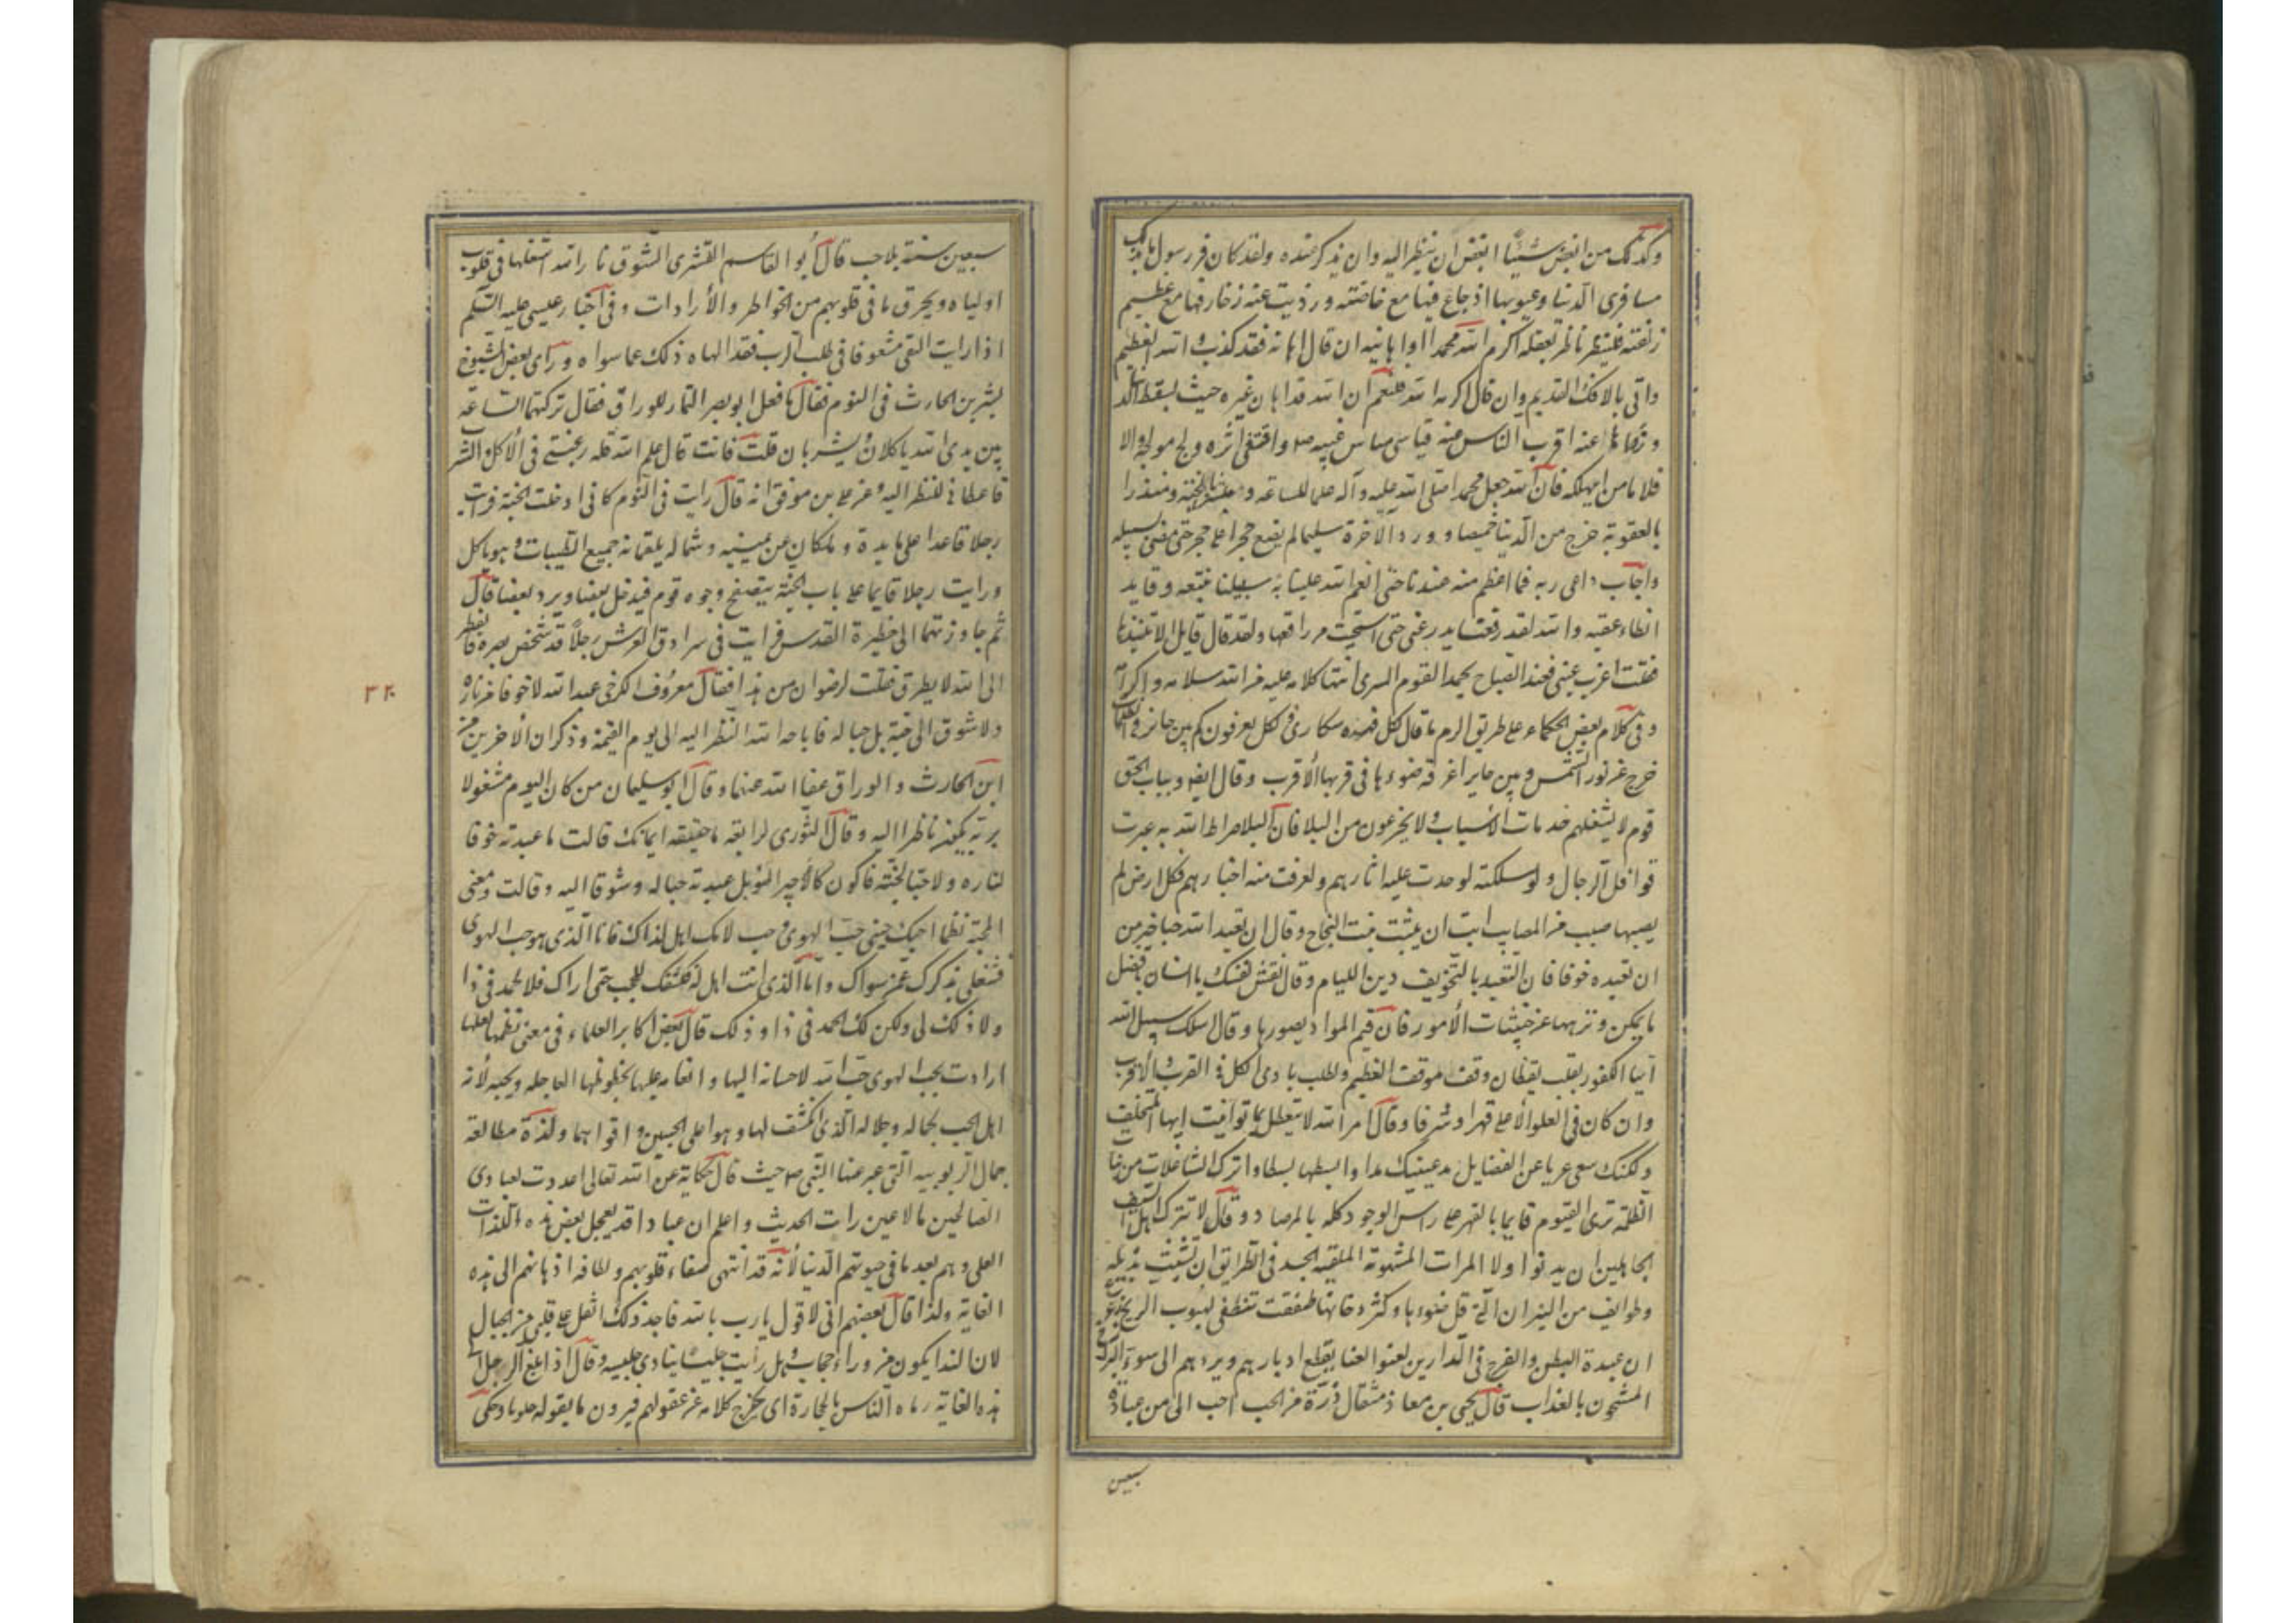 وكذلك من ابغض شيئا ابغض ان ينظر اليه وان يذكر عنده ولقد كان فى رسول الله
مساوى الدنيا وعيوبها اذ جاع فيها مع خاصته وزويت عنه زخارفها مع عظيم
زلفته فلينظر ناظر بعقله اكرم الله محمدا ام اهانه فان قال اهانه فقد كذب والله العظيم
واتى بالافك القديم وان قال اكرمه الله فليعلم ان الله قد اهان غيره حيث بسط الدنيا
وزواها عنه اقرب الناس منه فتاسى متاس بنبيه ص واقتفى اثره وولج مولجه والا
فلا يامن الهلكه فان الله جعل محمدا صلى الله عليه وآله علما للساعة ومبشرا بالجنة ومنذرا
بالعقوبة خرج من الدنيا خميصا وورد الاخرة سليما لم يضع حجرا على حجر حتى مضى لسبيله
واجاب داعى ربه فما اعظم منه عندنا حين انعم الله علينا به سلفا نتبعه وقايدا
نطاء عقبه والله لقد رقعت مدرعتى حتى استحييت من راقعها ولقد قال قايل الا تنبذها
فقلت اغرب عنى فعند الصباح يحمد القوم السرى انتها كلامه عليه من الله سلامه واكرامه
وفى كلام بعض الحكماء على طريق الرمز ما قال
خرج عن نور الشمس وبين حاير اغرقه ضوءها فى قربها الاقرب وقال ايضا وبباب الحق
قوم لا يشغلهم خدمات الاسباب ولا يجزعون من البلا فان البلا صراط الله به عبرت
قوافل الرجال ولو سلكته لوجدت عليه اثارهم ولعرفت منه اخبارهم فكل ارض لم
يصبها صبب من المصايب ابت ان ينبت نبت النجاح وقال ان تعبد الله حبا خير من
ان تعبده خوفا فان التعبد بالتخويف دين الليام وقال نقش نفسك يا انسان بافضل
ما يمكن ونزهها عن خبيثات الامور فان قيم المواد بصورها وقال اسلك سبيل الله
وقف موقف العظيم
وان كان فى العلو الاعلى قهرا وشرفا وقال امر الله لا يتعطل بما توانيت ايها المتخلف
ولكنك سعى عريا عن الفضايل مد عينيك مدا وابسطها بسطا واترك الشاغلات من
الظلمة ترى القيوم قايما بالقهر على راس الوجود كله بالمرصاد وقال لا تترك
الجاهلين ان يدنوا ولا المرات المشبوهة الملقية الجسد فى الطريق ان تتشبث بذيله
وطوايف من النيران التى قل ضوءها وكثر دخانها طفقت تنطفى لهبوب الريح
ان عبدة البطن والفرج فى الدارين لعنوا يقطع ادبارهم ويردهم الى سوء
المشحون بالعذاب قال يحيى بن معاذ مثقال ذرة من الحب احب الى من عبادة
سبعين
سبعين سنة بلا حب قال ابو القاسم القشرى الشوق نار الله اشعلها فى قلوب
اولياه ويحرق ما فى قلوبهم من الخواطر والارادات وفى اخبار عيسى عليه السلم
اذا رايت التقى مشعوفا فى طلب الرب فقد الهاه ذلك عما سواه وراى بعض الشيوخ
بشر بن الحارث فى النوم فقال ما فعل ابو نصر التمار للوراق فقال تركتهما الساعه
بين يدى الله ياكلان ويشربان قلت فانت قال علم الله قله رغبتى فى الاكل والشرب
فاعطانى النظر اليه وعن على بن موفق انه قال رايت فى النوم كانى ادخلت الجنة فرايت
رجلا قاعدا على مايدة وملكان عن يمينه وشماله يلقمانه جميع الطيبات وهو ياكل
ورايت رجلا قايما على باب الجنة يتصفح وجوه قوم فيدخل بعضا ويرد بعضا قال
ثم جاوزتهما الى حظيرة القدس فرايت فى سرادق العرش رجلا قد شخص بصره ينظر
الى الله لا يطرق فقلت لرضوان من هذا فقال معروف الكرخى عبد الله لا خوفا من ناره
ولا شوقا الى جنته بل حبا له فاباحه الله النظر اليه الى يوم القيمة وذكر ان الاخرين
ابن الحارث والوراق عفا الله عنهما وقال ابو سليمان من كان اليوم مشغولا
بربه يكون ناظرا اليه وقال الثورى لرابعه ما حقيقه ايمانك قالت ما عبدته خوفا
لناره ولا حبا لجنته فاكون كالاجير السوء بل عبدته حبا له وشوقا اليه وقالت فى معنى
المحبة نظما احبك حبين حب الهوى وحب لانك اهل لذاك فاما الذى هو حب الهوى
فشغلى بذكرك عمن سواك واما الذى انت اهل له فكشفك للحجب حتى اراك فلا الحمد فى ذا
ولا ذلك لى ولكن لك الحمد فى ذا وذلك قال بعض اكابر العلماء فى معنى نظمها لعلها
ارادت بحب الهوى حب الله لاحسانه اليها وانعامه عليها بحظوظها العاجله ويحبه لانه
اهل الحب بجماله وجلاله الذى انكشف لها وهو اعلى الحبين واقواهما ولذة مطالعة
جمال الربوبيه التى عبر عنها النبى ص حيث قال حكاية عن الله تعالى اعددت لعبادى
الصالحين ما لا عين رات الحديث واعلم ان عبادا قد يعجل بعض هذه اللذات
العلى وهم بعد ما فى حيوتهم الدنيا لانه قد انتهى صفاء قلوبهم ولطافه اذهانهم الى هذه
الغاية ولذا قال بعضهم انى لاقول يا رب يا الله فاجد ذلك اثقل على قلبى من الجبال
لان الندا يكون من وراء حجاب وهل رايت جليسا ينادى جليسه وقال اذا بلغ الرجل الى
هذه الغاية رماه الناس بالحجارة اى يخرج كلامه عن عقولهم فيرون ما يقوله جنونا وحكى
٣٢٠